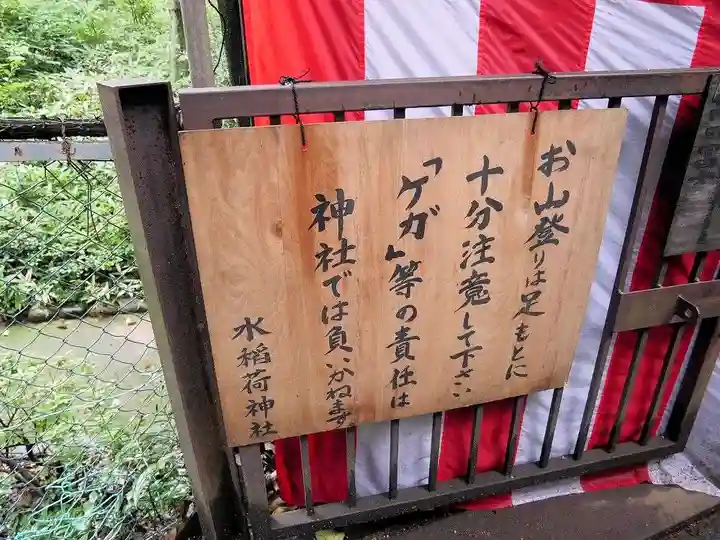 お山登りは足もとに
十分注意して下さい
「ケガ」等の責任は
神社では負いかねます。
水稲荷神社